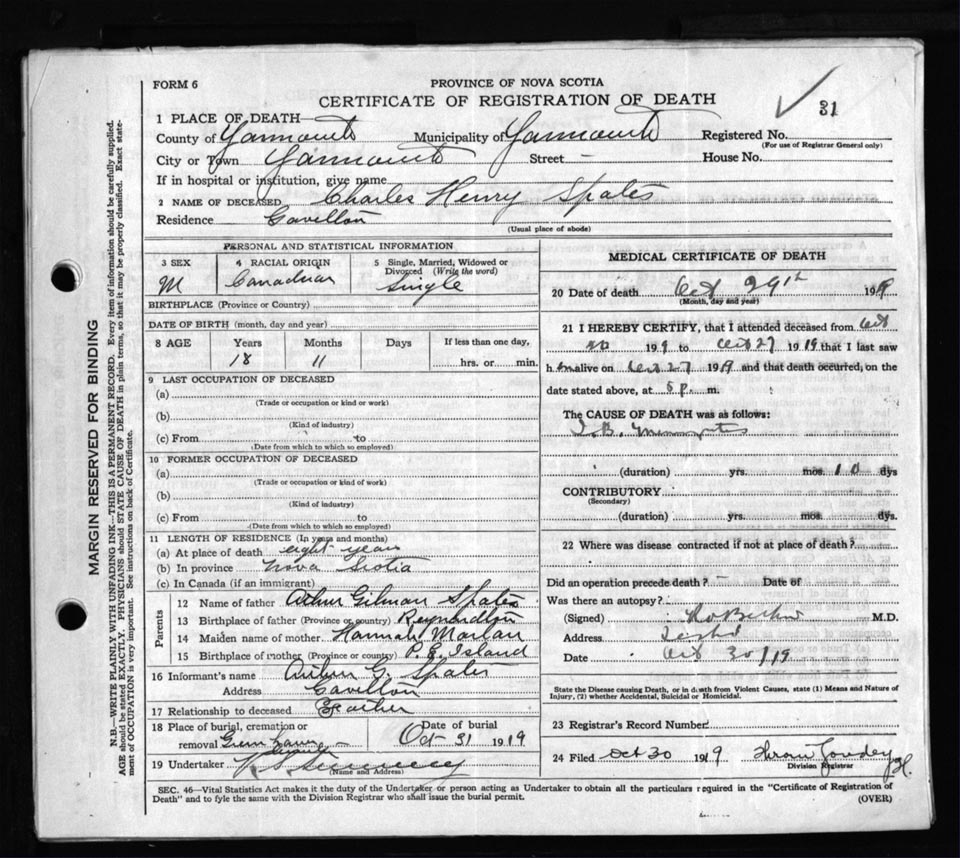 FORM 6
PROVINCE OF NOVA SCOTIA
CERTIFICATE OF REGISTRATION OF DEATH
31
1 PLACE OF DEATH—
County of Yarmouth Municipality of Yarmouth Registered No.
(For use of Registrar General only)
City or Town Yarmouth Street — House No.
If in hospital or institution, give name
2 NAME OF DECEASED Charles Henry Spates
Residence Gavillon
(Usual place of abode)
PERSONAL AND STATISTICAL INFORMATION
3 SEX M
4 RACIAL ORIGIN Canadian
5 Single, Married, Widowed or Divorced (Write the word) Single
BIRTHPLACE (Province or Country)
DATE OF BIRTH (month, day and year)
8 AGE Years Months Days If less than one day,
18 11 hrs. or min.
9 LAST OCCUPATION OF DECEASED
(a)
(Trade or occupation or kind or work)
(b)
(Kind of industry)
(c) From to
(Date from which to which so employed)
10 FORMER OCCUPATION OF DECEASED
(a)
(Trade or occupation or kind of work)
(b)
(Kind of industry)
(c) From to
(Date from which to which so employed)
11 LENGTH OF RESIDENCE (In years and months)
(a) At place of death eight years
(b) In province Nova Scotia
(c) In Canada (if an immigrant)
Parents
12 Name of father Arthur Gilman Spates
13 Birthplace of father (Province or country) Reynardton
14 Maiden name of mother Hannah
15 Birthplace of mother (Province or country) P. E. Island
16 Informant's name Arthur G. Spates
Address Gavillon
17 Relationship to deceased Father
18 Place of burial, cremation or removal
Date of burial
Oct 31 1919
19 Undertaker
(Name and Address)
MEDICAL CERTIFICATE OF DEATH
20 Date of death Oct 29th 1919
(Month, day and year)
21 I HEREBY CERTIFY, that I attended deceased from Oct
20 1919 to Oct 27 1919 that I last saw
h im alive on Oct 27 1919 and that death occurred, on the
date stated above, at 5 p. m.
The CAUSE OF DEATH was as follows:
T.B. Meningitis
(duration) yrs. mos. 10 dys
CONTRIBUTORY
(Secondary)
(duration) yrs. mos. dys.
22 Where was disease contracted if not at place of death?
Did an operation precede death? — Date of
Was there an autopsy?
(Signed) M.D.
Address
Date Oct 30/19
State the Disease causing Death, or in death from Violent Causes, state (1) Means and Nature of
Injury, (2) whether Accidental, Suicidal or Homicidal.
23 Registrar's Record Number
24 Filed Oct 30 1919
Division Registrar
SEC. 46—Vital Statistics Act makes it the duty of the Undertaker or person acting as Undertaker to obtain all the particulars required in the "Certificate of Registration of
Death" and to fyle the same with the Division Registrar who shall issue the burial permit.
(OVER)
MARGIN RESERVED FOR BINDING
N.B.—WRITE PLAINLY WITH UNFADING INK—THIS IS A PERMANENT RECORD. Every item of information should be carefully supplied.
AGE should be stated EXACTLY. PHYSICIANS should STATE CAUSE OF DEATH in plain terms, so that it may be properly classified. Exact state-
ment of OCCUPATION is very important. See instructions on back of Certificate.